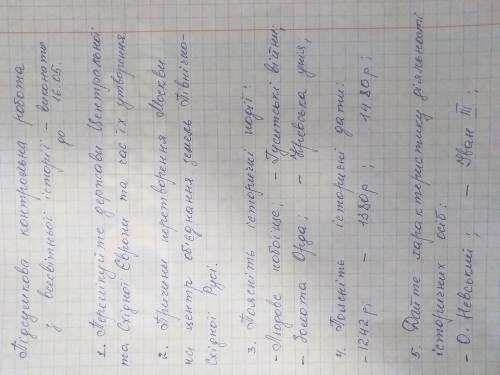 Підсумкова контрольна робота
з всесвітної історії – виконати
до 16.05.
1. Перелікуйте держави Центральної
та Східної Європи та час їх утворення.
2. Причини перетворення Москви
на центр об'єднання земель Північно-
Східної Русі.
3. Поясніть історичні події:
- Льодове побоїще; - Гуситські війни;
- Золота Орда; - Кревська унія;
4. Поясніть історичні дати:
- 1242 р; - 1380 р; 1480 р;
5. Дайте характеристику діяльності
історичних осіб:
- О. Невський; - Іван III;